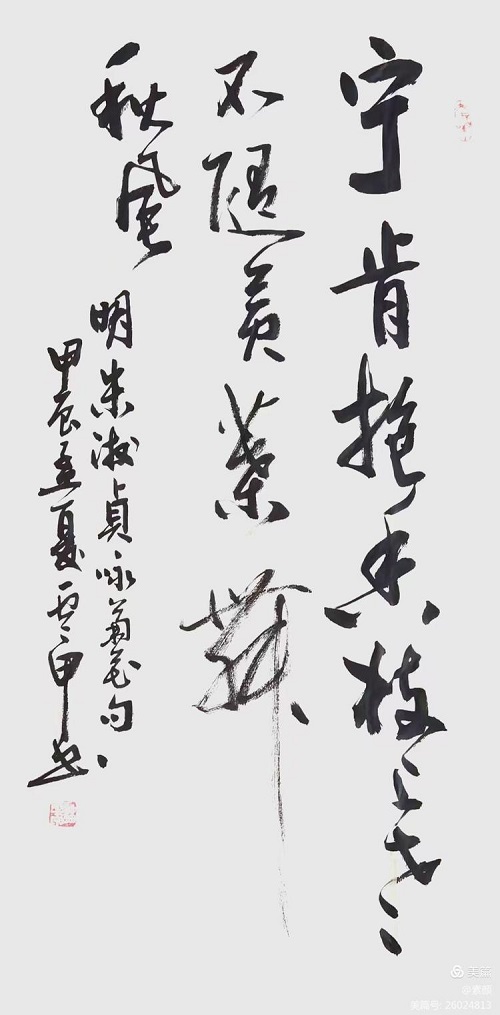 宁肯抱香枝上老
不隨黄葉舞
秋風
明朱淑貞咏菊花句
甲辰孟夏 书
美篇
美篇号: 26024813